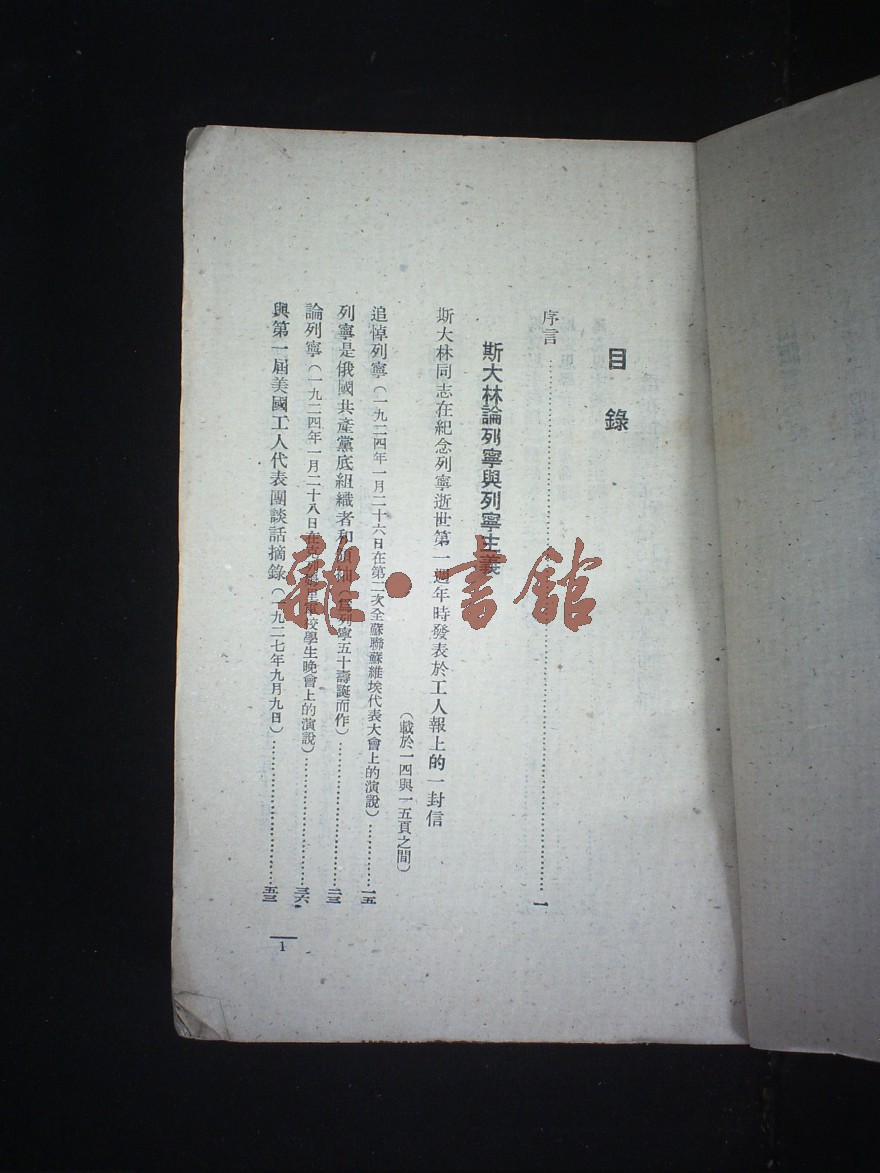 目錄
序言……………………一
斯大林論列寧與列寧主義
斯大林同志在紀念列寧逝世第一週年時發表於工人報上的一封信
(載於一四與一五頁之間)
追悼列寧(一九二四年一月二十六日在第二次全蘇聯蘇維埃代表大會上的演說)……一五
列寧是俄國共產黨底組織者和領袖(爲列寧五十壽誕而作)……………………二三
論列寧(一九二四年一月二十八日在克列姆里軍校學生晚會上的演說)……………………三六
與第一屆美國工人代表團談話摘錄(一九二七年九月九日)……………………五三
1
雜·書館